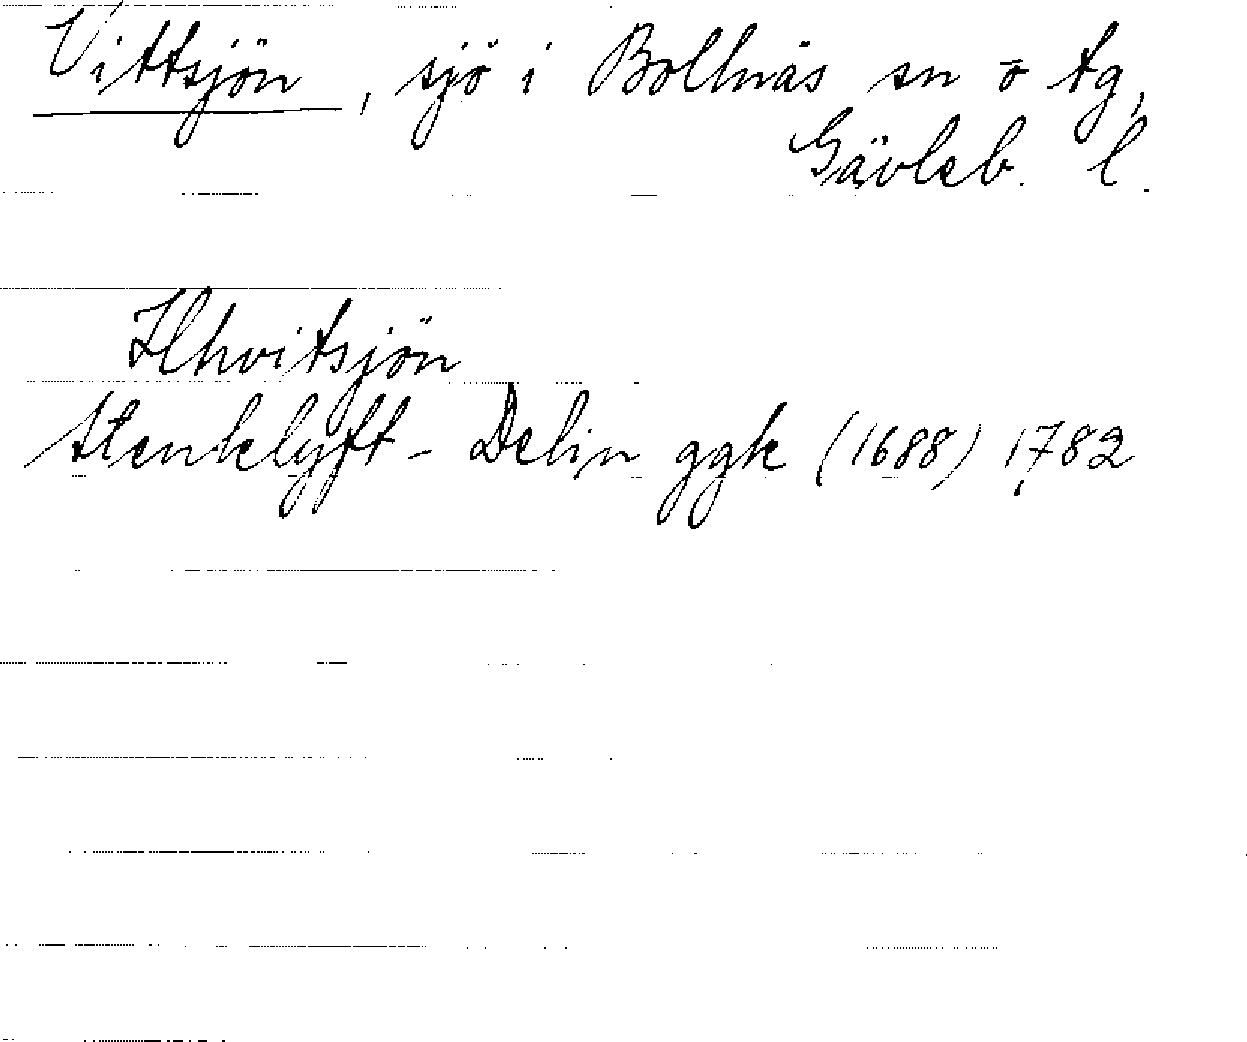 Vittsjön, sjö i Bollnäs sn o tg,
Gävleb. l.
Hhvitsjön
Stenklyft - Delin ggk (1688) 1782